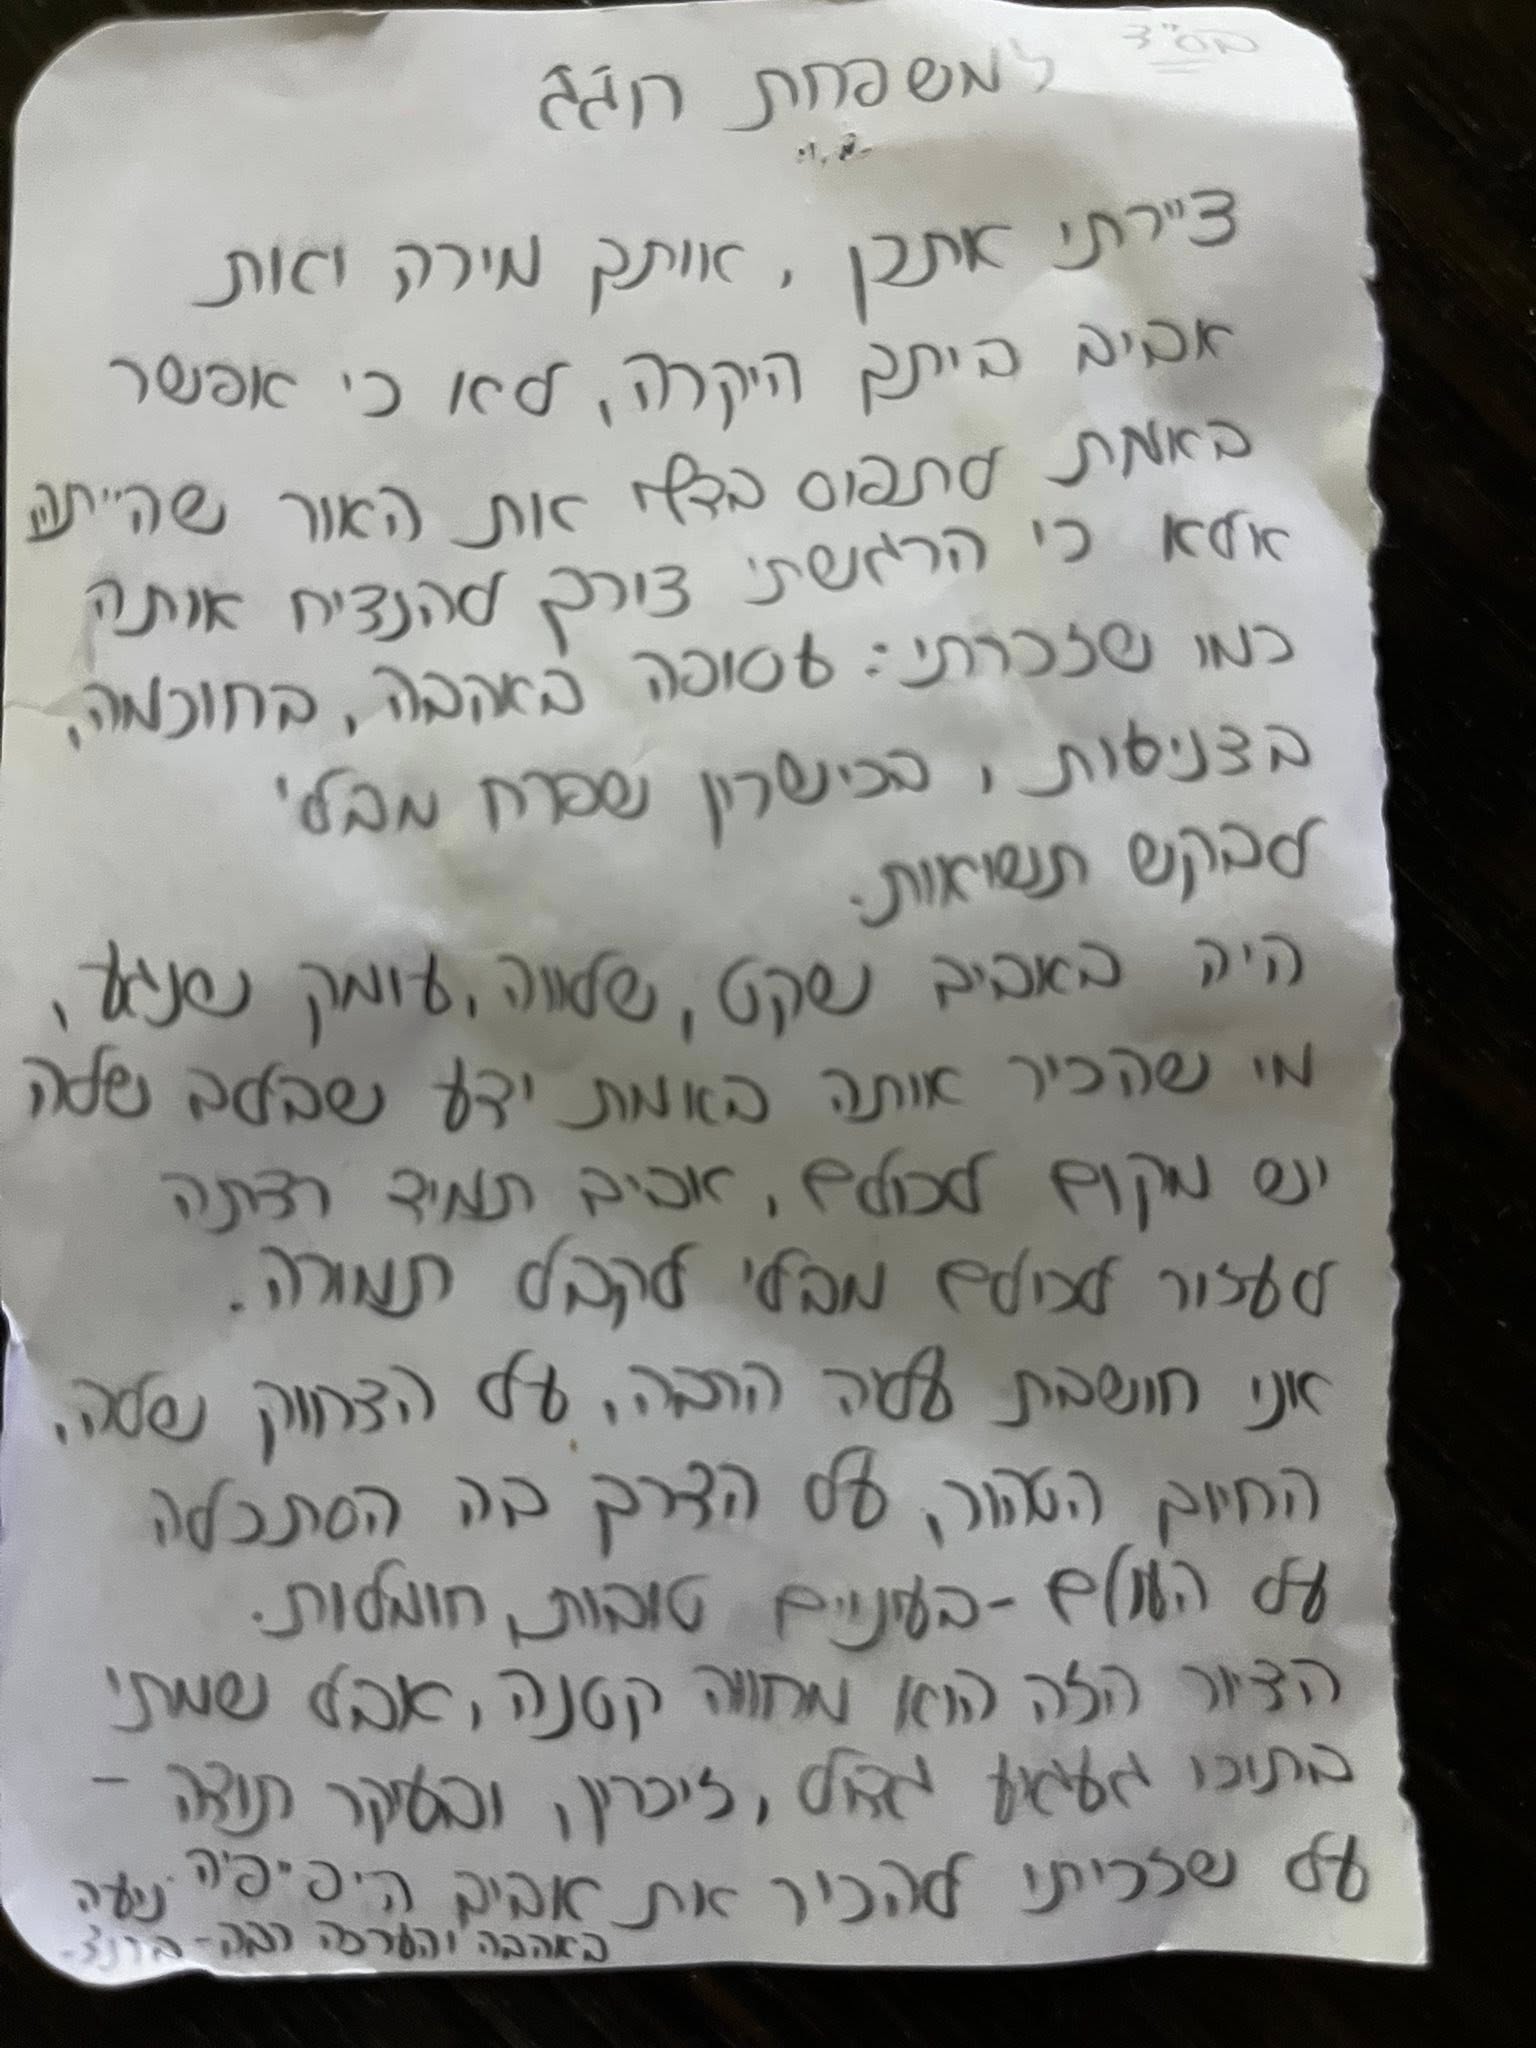 בס"ד
למשפחת חגג
ציירתי אתכן, אותך מירה ואת
אביב ביתך היקרה, לא כי אפשר
באמת לתפוס בדף את האור שהייתה
אלא כי הרגשתי צורך להנציח אותה
כמו שזכרתי: עטופה באהבה, בחוכמה,
בצניעות, בכישרון שפרח מבלי
לבקש תשואות.
היה באביב שקט, שלווה, עומק שנגע,
מי שהכיר אותה באמת ידע שבלב שלה
יש מקום לכולם, אביב תמיד רצתה
לעזור לכולם מבלי לקבל תמורה.
אני חושבת עליה הרבה, על הצחוק שלה,
החיוך הטהור, על הדרך בה הסתכלה
על העולם - בעיניים טובות, חומלות.
הציור הזה הוא מחווה קטנה, אבל שמתי
בתוכו געגוע גדול, זיכרון, ובעיקר תודה -
על שזכיתי להכיר את אביב היפיפיה
באהבה והערכה רבה - נועה